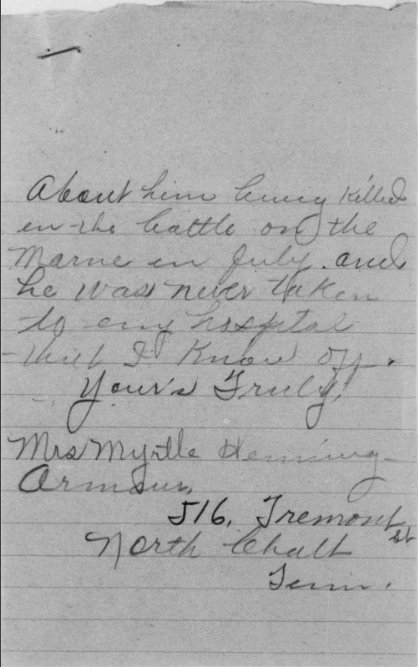 About him being Killed
in the battle on the
Marne in July. and
he was never taken
to eny hospital
that I Know off.
Your's Truly!
Mrs Myrtle Heming-
Armour,
516, Tremont St
North Chatt
Tenn.